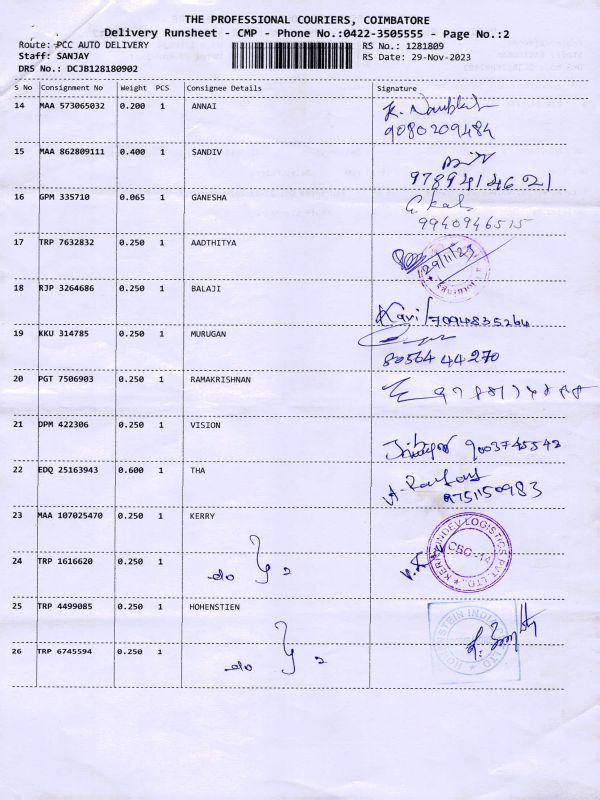 THE PROFESSIONAL COURIERS, COIMBATORE
Delivery Runsheet - CMP - Phone No.:0422-3505555 - Page No.:2
Route: PCC AUTO DELIVERY RS No.: 1281809
Staff: SANJAY RS Date: 29-Nov-2023
DRS No.: DCJB128180902
S No Consignment No Weight PCS Consignee Details Signature
14 MAA 573065032 0.200 1 ANNAI
9080209484
15 MAA 862809111 0.400 1 SANDIV
9789414621
16 GPM 335710 0.065 1 GANESHA
9940946515
17 TRP 7632832 0.250 1 AADTHITYA
29/11/23
18 RJP 3264686 0.250 1 BALAJI
Ravi/7094835264
19 KKU 314785 0.250 1 MURUGAN
8056444270
20 PGT 7506903 0.250 1 RAMAKRISHNAN
21 DPM 422306 0.250 1 VISION
9003745542
22 EDQ 25163943 0.600 1 THA
9751150983
23 MAA 107025470 0.250 1 KERRY
KERRY INDEV LOGISTICS PVT. LTD.
CBC-14
24 TRP 1616620 0.250 1 do
25 TRP 4499085 0.250 1 HOHENSTIEN
26 TRP 6745594 0.250 1 do